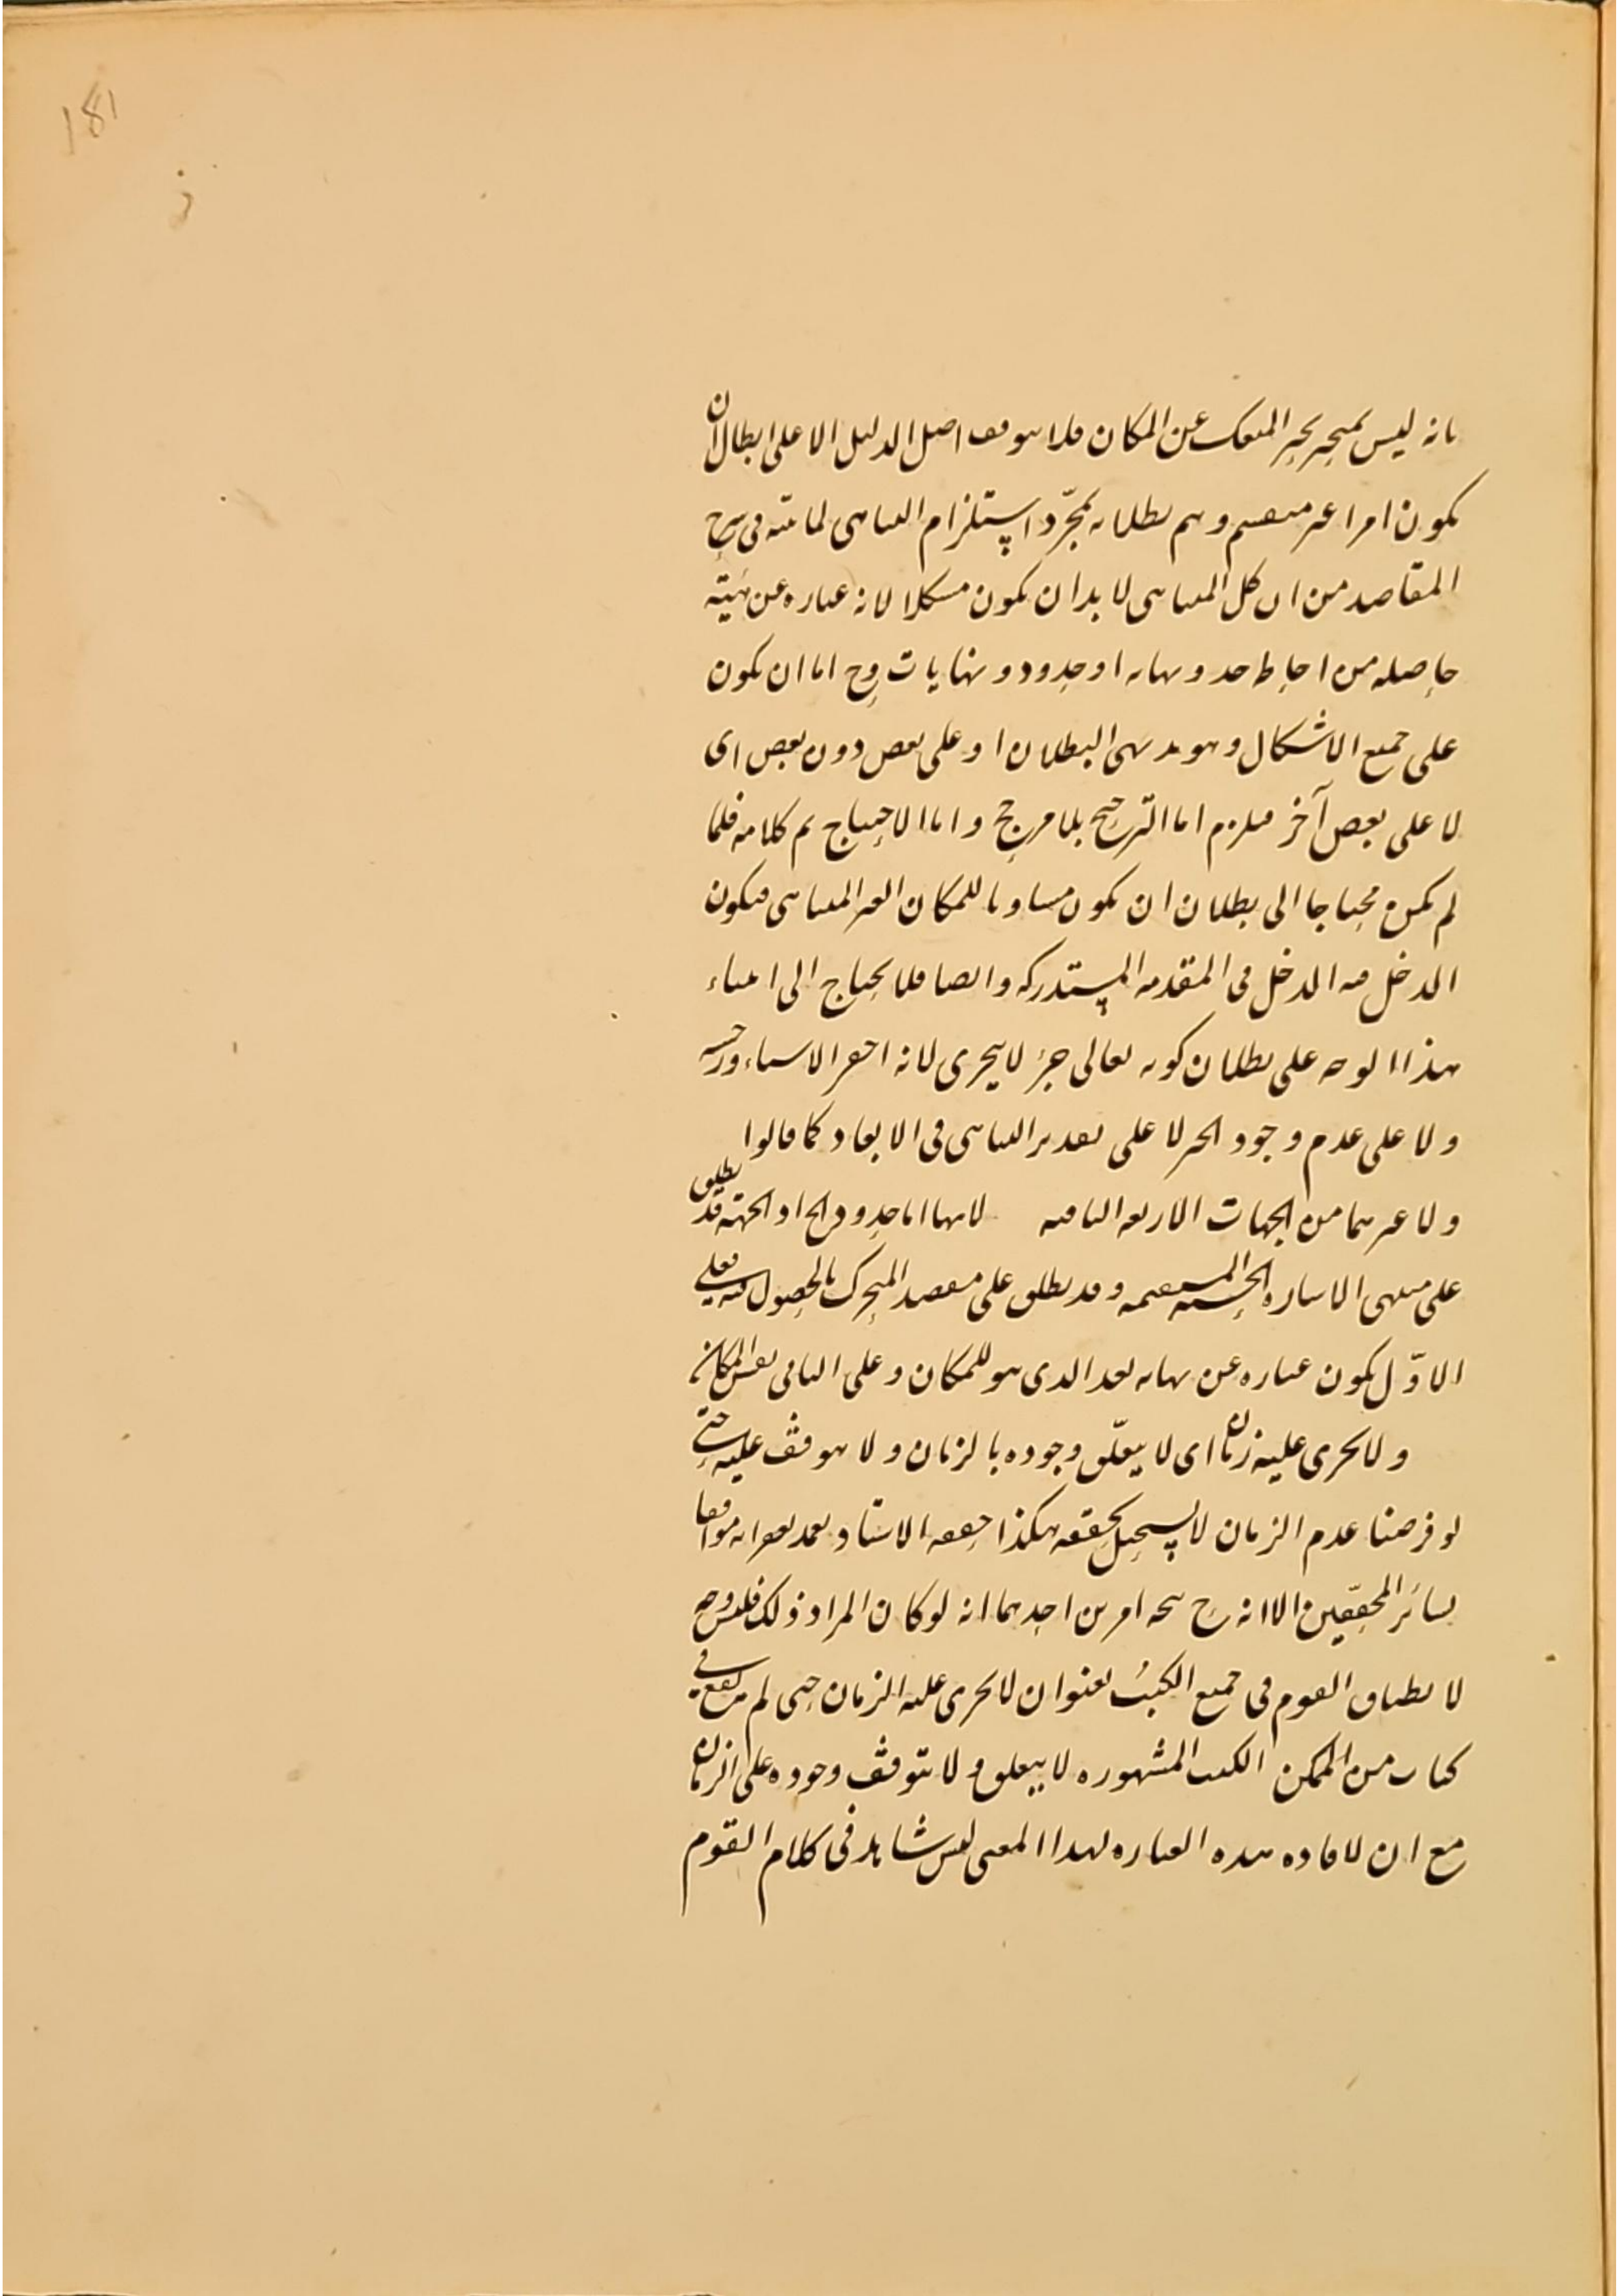 181
بانه ليس بمتحيز بحيز المنفك عن المكان فلا يتوقف اصل الدليل الا على ابطال ان
يكون امرا غير منقسم وتم بطلانه بمجرد استلزام التناهى لما بينه فى شرح
المقاصد من ان كل المتناهى لا بد ان يكون مشكلا لانه عباره عن هيئة
حاصله من احاطه حد ونهايه او حدود ونهايات وح اما ان يكون
على جميع الاشكال وهو بديهى البطلان او على بعض دون بعض اى
لا على بعض آخر فيلزم اما الترجيح بلا مرجح واما الاحتياج تم كلامه فلما
لم يكن محتاجا الى بطلان ان يكون مساويا للمكان الغير المتناهى فيكون
الدخل فيه الدخل فى المقدمه المستدركه وايضا فلا يحتاج الى ابتناء
هذا الوجه على بطلان كونه تعالى جزء لا يتجزى لانه احقر الاشياء
ولا على عدم وجود الحيز لا على تقدير التناهى فى الابعاد كما قالوا
ولا غيرهما من الجهات الاربعه الباقيه لانها اما حدود الجهة قد يطلق
على منتهى الاشاره الحسيه المستقيمه وقد يطلق على مقصد المتحرك بالحصول فيه فعلى
الاوّل يكون عباره عن نهايه بعد الذى هو للمكان وعلى الثانى نفس المكان
ولا يجرى عليه زمان اى لا يتعلّق وجوده بالزمان ولا يتوقف عليه حتى
لو فرضنا عدم الزمان لا يستحيل تحققه هكذا حققه الاستاد موافقا
لسائر المحققين الا انه ح يتجه امرين احدهما انه لو كان المراد ذلك فليس وجه
لا يطباق القوم فى جميع الكتب بعنوان لا يجرى عليه الزمان حتى لم يقع فى
كتاب من الكتب المشهوره لا يتعلق ولا يتوقف وجوده على الزمان
مع ان لافاده هذه العباره لهذا المعنى ليس شاهد فى كلام القوم